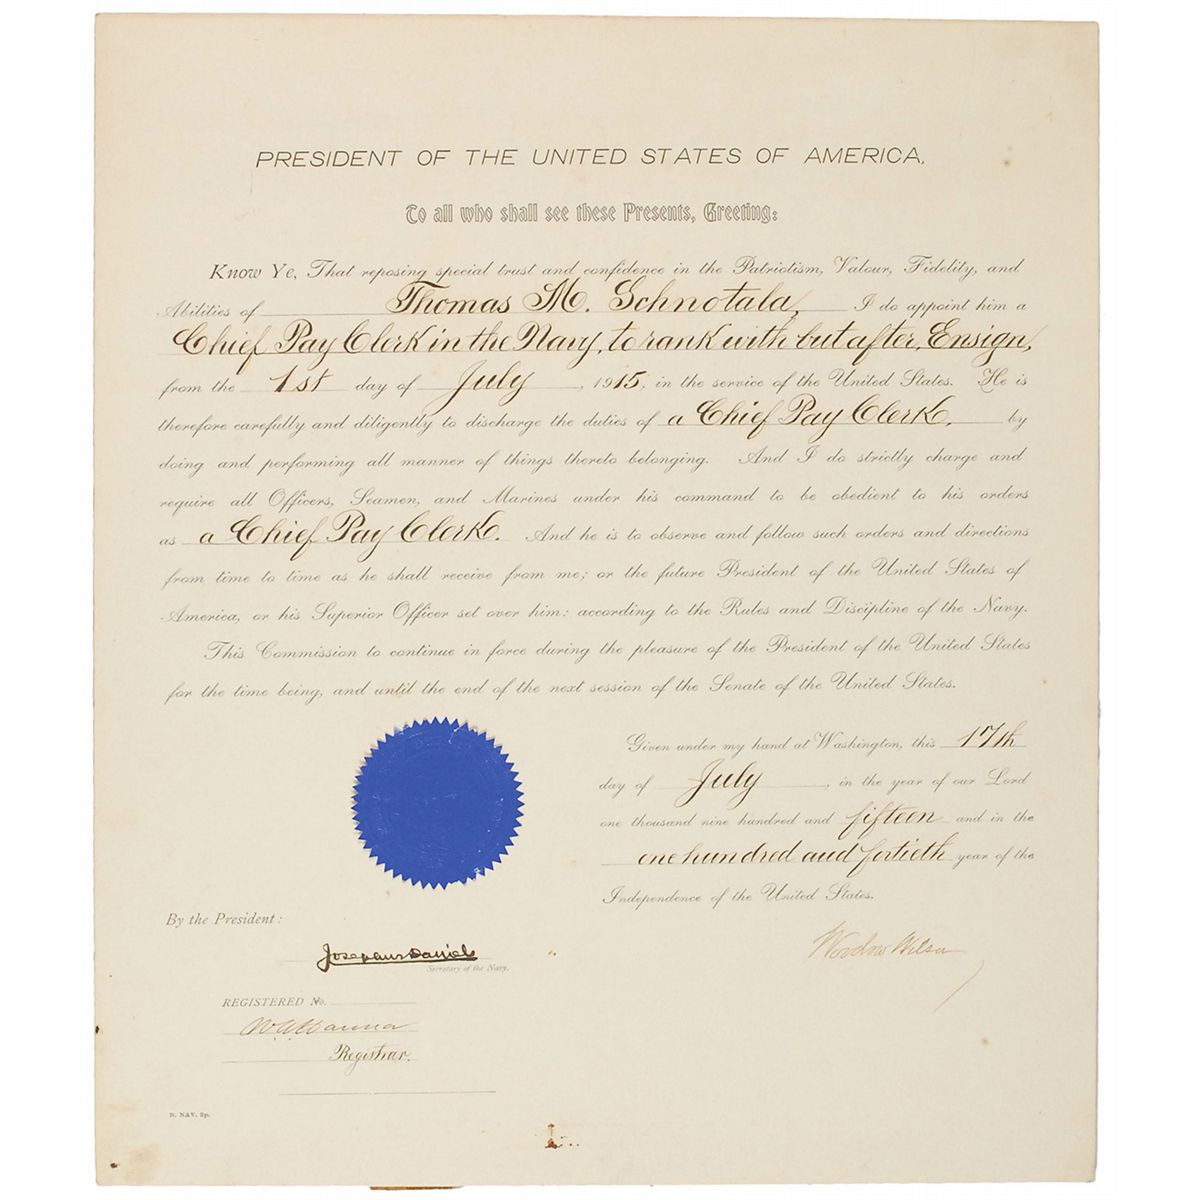 PRESIDENT OF THE UNITED STATES OF AMERICA.
To all who shall see these Presents, Greeting:
Know Ye, That reposing special trust and confidence in the Patriotism, Valour, Fidelity, and
Abilities of Thomas M. Schnotala, I do appoint him a
Chief Pay Clerk in the Navy, to rank with but after, Ensign,
from the 1st day of July, 1915, in the service of the United States. He is
therefore carefully and diligently to discharge the duties of a Chief Pay Clerk. by
doing and performing all manner of things thereto belonging. And I do strictly charge and
require all Officers, Seamen, and Marines under his command to be obedient to his orders
as a Chief Pay Clerk. And he is to observe and follow such orders and directions
from time to time as he shall receive from me; or the future President of the United States of
America, or his Superior Officer set over him: according to the Rules and Discipline of the Navy.
This Commission to continue in force during the pleasure of the President of the United States
for the time being, and until the end of the next session of the Senate of the United States.
Given under my hand at Washington, this 17th
day of July, in the year of our Lord
one thousand nine hundred and fifteen and in the
one hundred and fortieth year of the
Independence of the United States.
Woodrow Wilson
By the President:
Josephus Daniels
Secretary of the Navy.
REGISTERED No.
Registrar.
N. NAV. Sp.